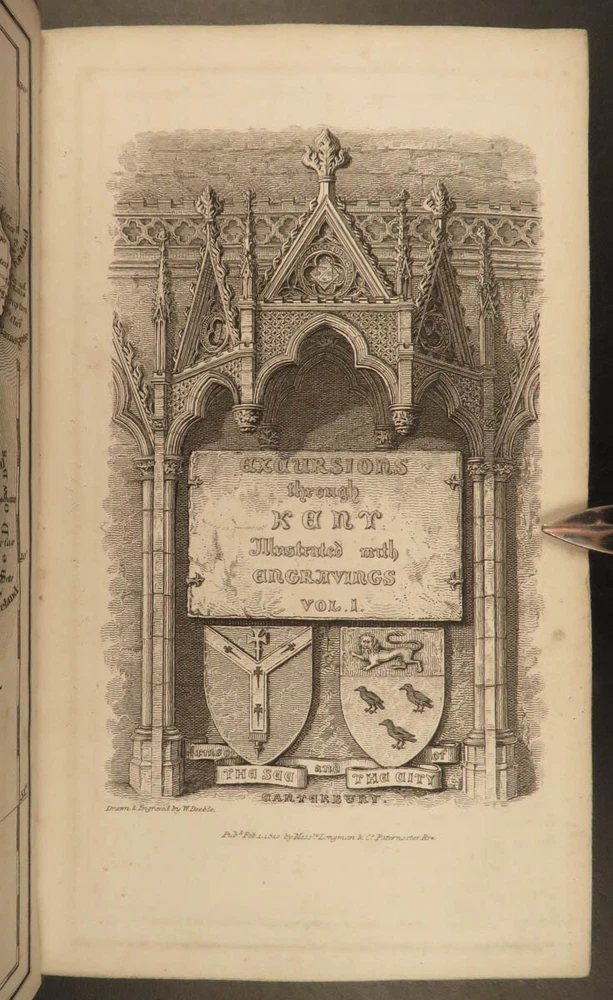 EXCURSIONS
through
KENT
Illustrated with
ENGRAVINGS
VOL. I.
Arms of
THE SEE and THE CITY
of
CANTERBURY.
Drawn & Engraved by W. Deeble.
Pub.d Feb. 1, by Mess.rs Longman & Co. Paternoster Row